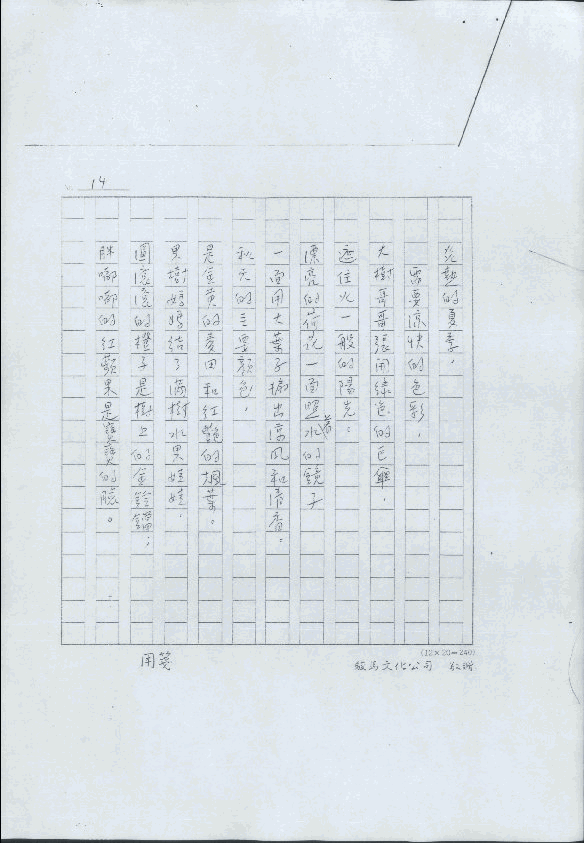 14
炎熱的夏季，
需要涼快的色彩，
大樹哥哥張開綠色的巨傘，
遮住火一般的陽光。
漂亮的荷花一面照著水的鏡子
一面用大葉子搧出涼風和清香。
秋天的主要顏色，
是金黃的麥田和紅艷的楓葉。
果樹媽媽結了滿樹水果娃娃，
圓滾滾的橙子是樹上的金鈴鐺；
胖嘟嘟的紅蘋果是的臉。
(12×20=240)
駿馬文化公司
用箋